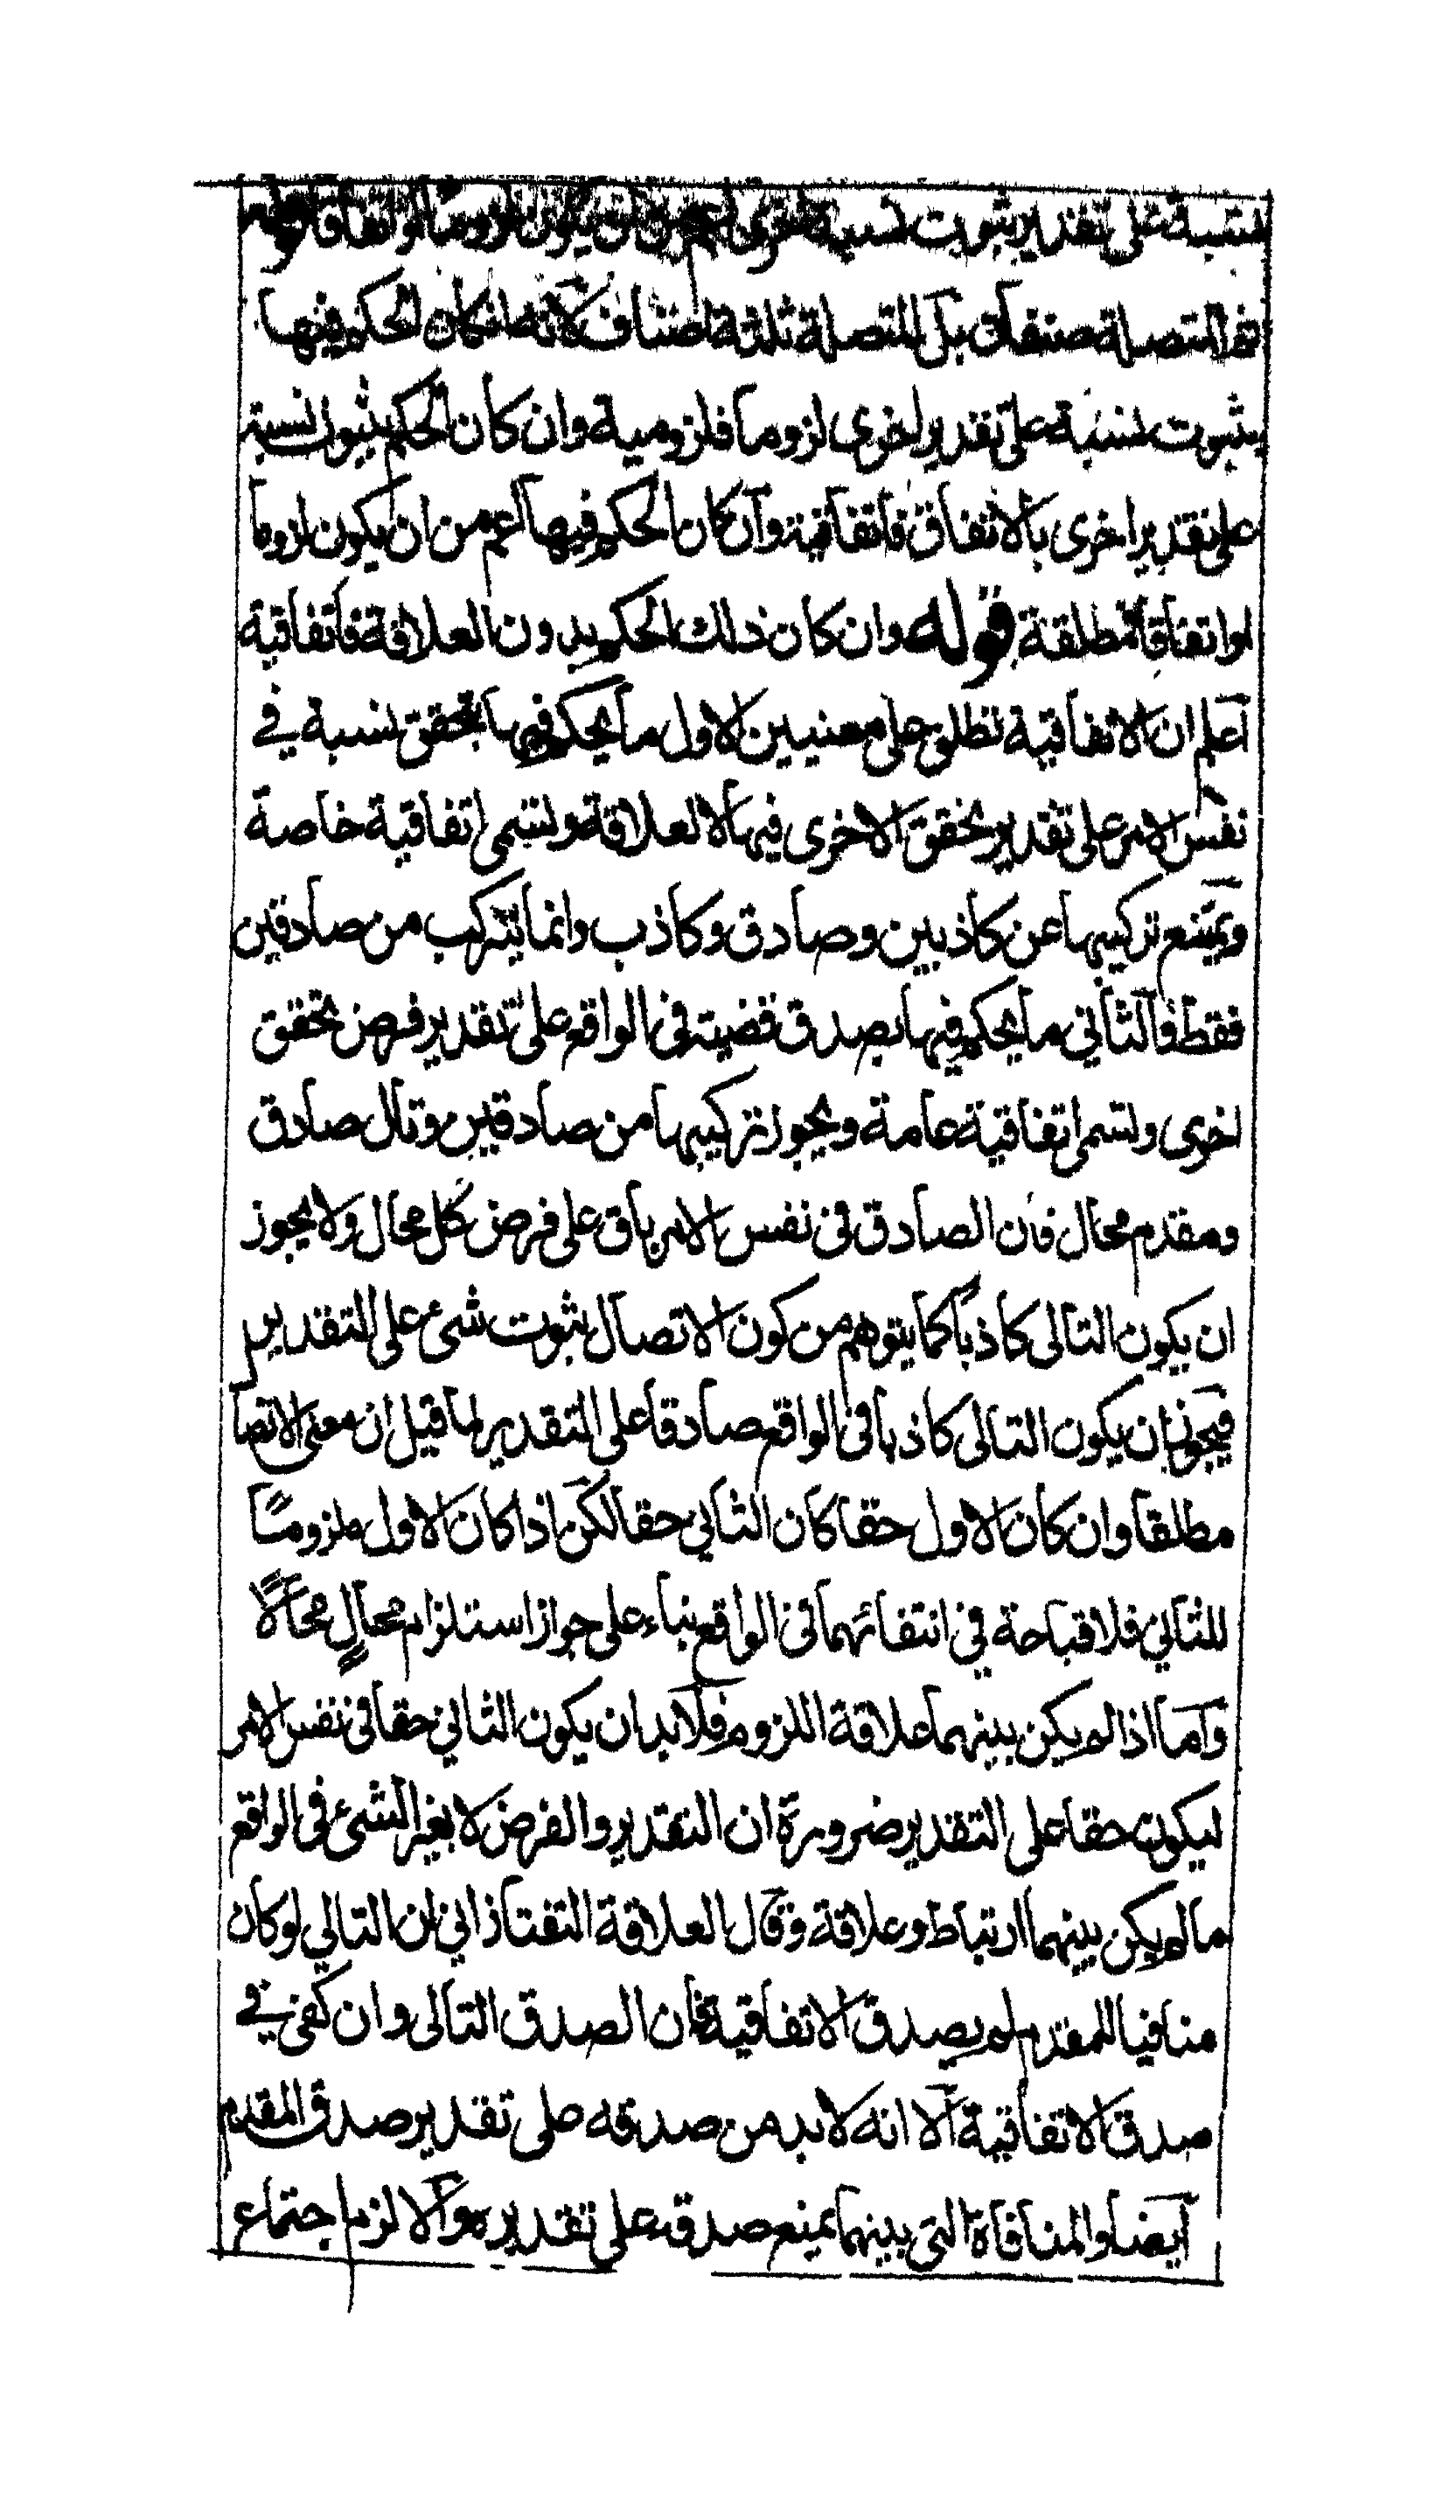 نسبة على تقدير ثبوت نسبة اخرى اعم من ان يكون لزوما او اتفاقا قوله
ثم المتصلة صنفان بل المتصلة ثلثة اصناف لانه ان كان الحكم فيها
بثبوت نسبة على تقدير اخرى لزوما فلزومية وان كان الحكم بثبوت نسبة
على تقدير اخرى بالاتفاق فاتفاقية وان كان الحكم فيها اعم من ان يكون لزوما
او اتفاقا فمطلقة قوله وان كان ذلك الحكم بدون العلاقة فاتفاقية
اعلم ان الاتفاقية تطلق على معنيين الاول ما يحكم فيها بتحقق نسبة في
نفس الامر على تقدير تحقق الاخرى فيها لا لعلاقة وتسمى اتفاقية خاصة
ويمتنع تركيبها عن كاذبين وصادق وكاذب وانما يتركب من صادقين
فقط والثاني ما يحكم فيها بصدق قضية في الواقع على تقدير فرض تحقق
اخرى وتسمى اتفاقية عامة ويجوز تركيبها من صادقين وتال صادق
ومقدم محال فان الصادق في نفس الامر باق على فرض كل محال ولا يجوز
ان يكون التالى كاذبا كما يتوهم من كون الاتصال بثبوت شئ على التقدير
فيجوز ان يكون التالى كاذبا فى الواقع صادقا على التقدير لما قيل ان معنى الاتصا
مطلقا وان كان الاول حقا كان الثاني حقا لكن اذا كان الاول ملزومًا
للثاني فلا قباحة في انتفائهما في الواقع بناء على جواز استلزام محالٍ محالًا
وامّا اذا لم يكن بينهما علاقة اللزوم فلا بد ان يكون الثاني حقا في نفس الامر
ليكون حقا على التقدير ضرورة ان التقدير والفرض لا يغير الشئ فى الواقع
ما لم يكن بينهما ارتباط وعلاقة وقال العلاقة التفتازاني ان التالي لو كان
منافيا للمقدم لم يصدق الاتفاقية فان الصدق التالى وان كفى في
صدق الاتفاقية الا انه لا بد من صدقه على تقدير صدق المقدم
ايضا والمنافاة التى بينهما يمنع صدقه على تقديره والا لزم اجتماع